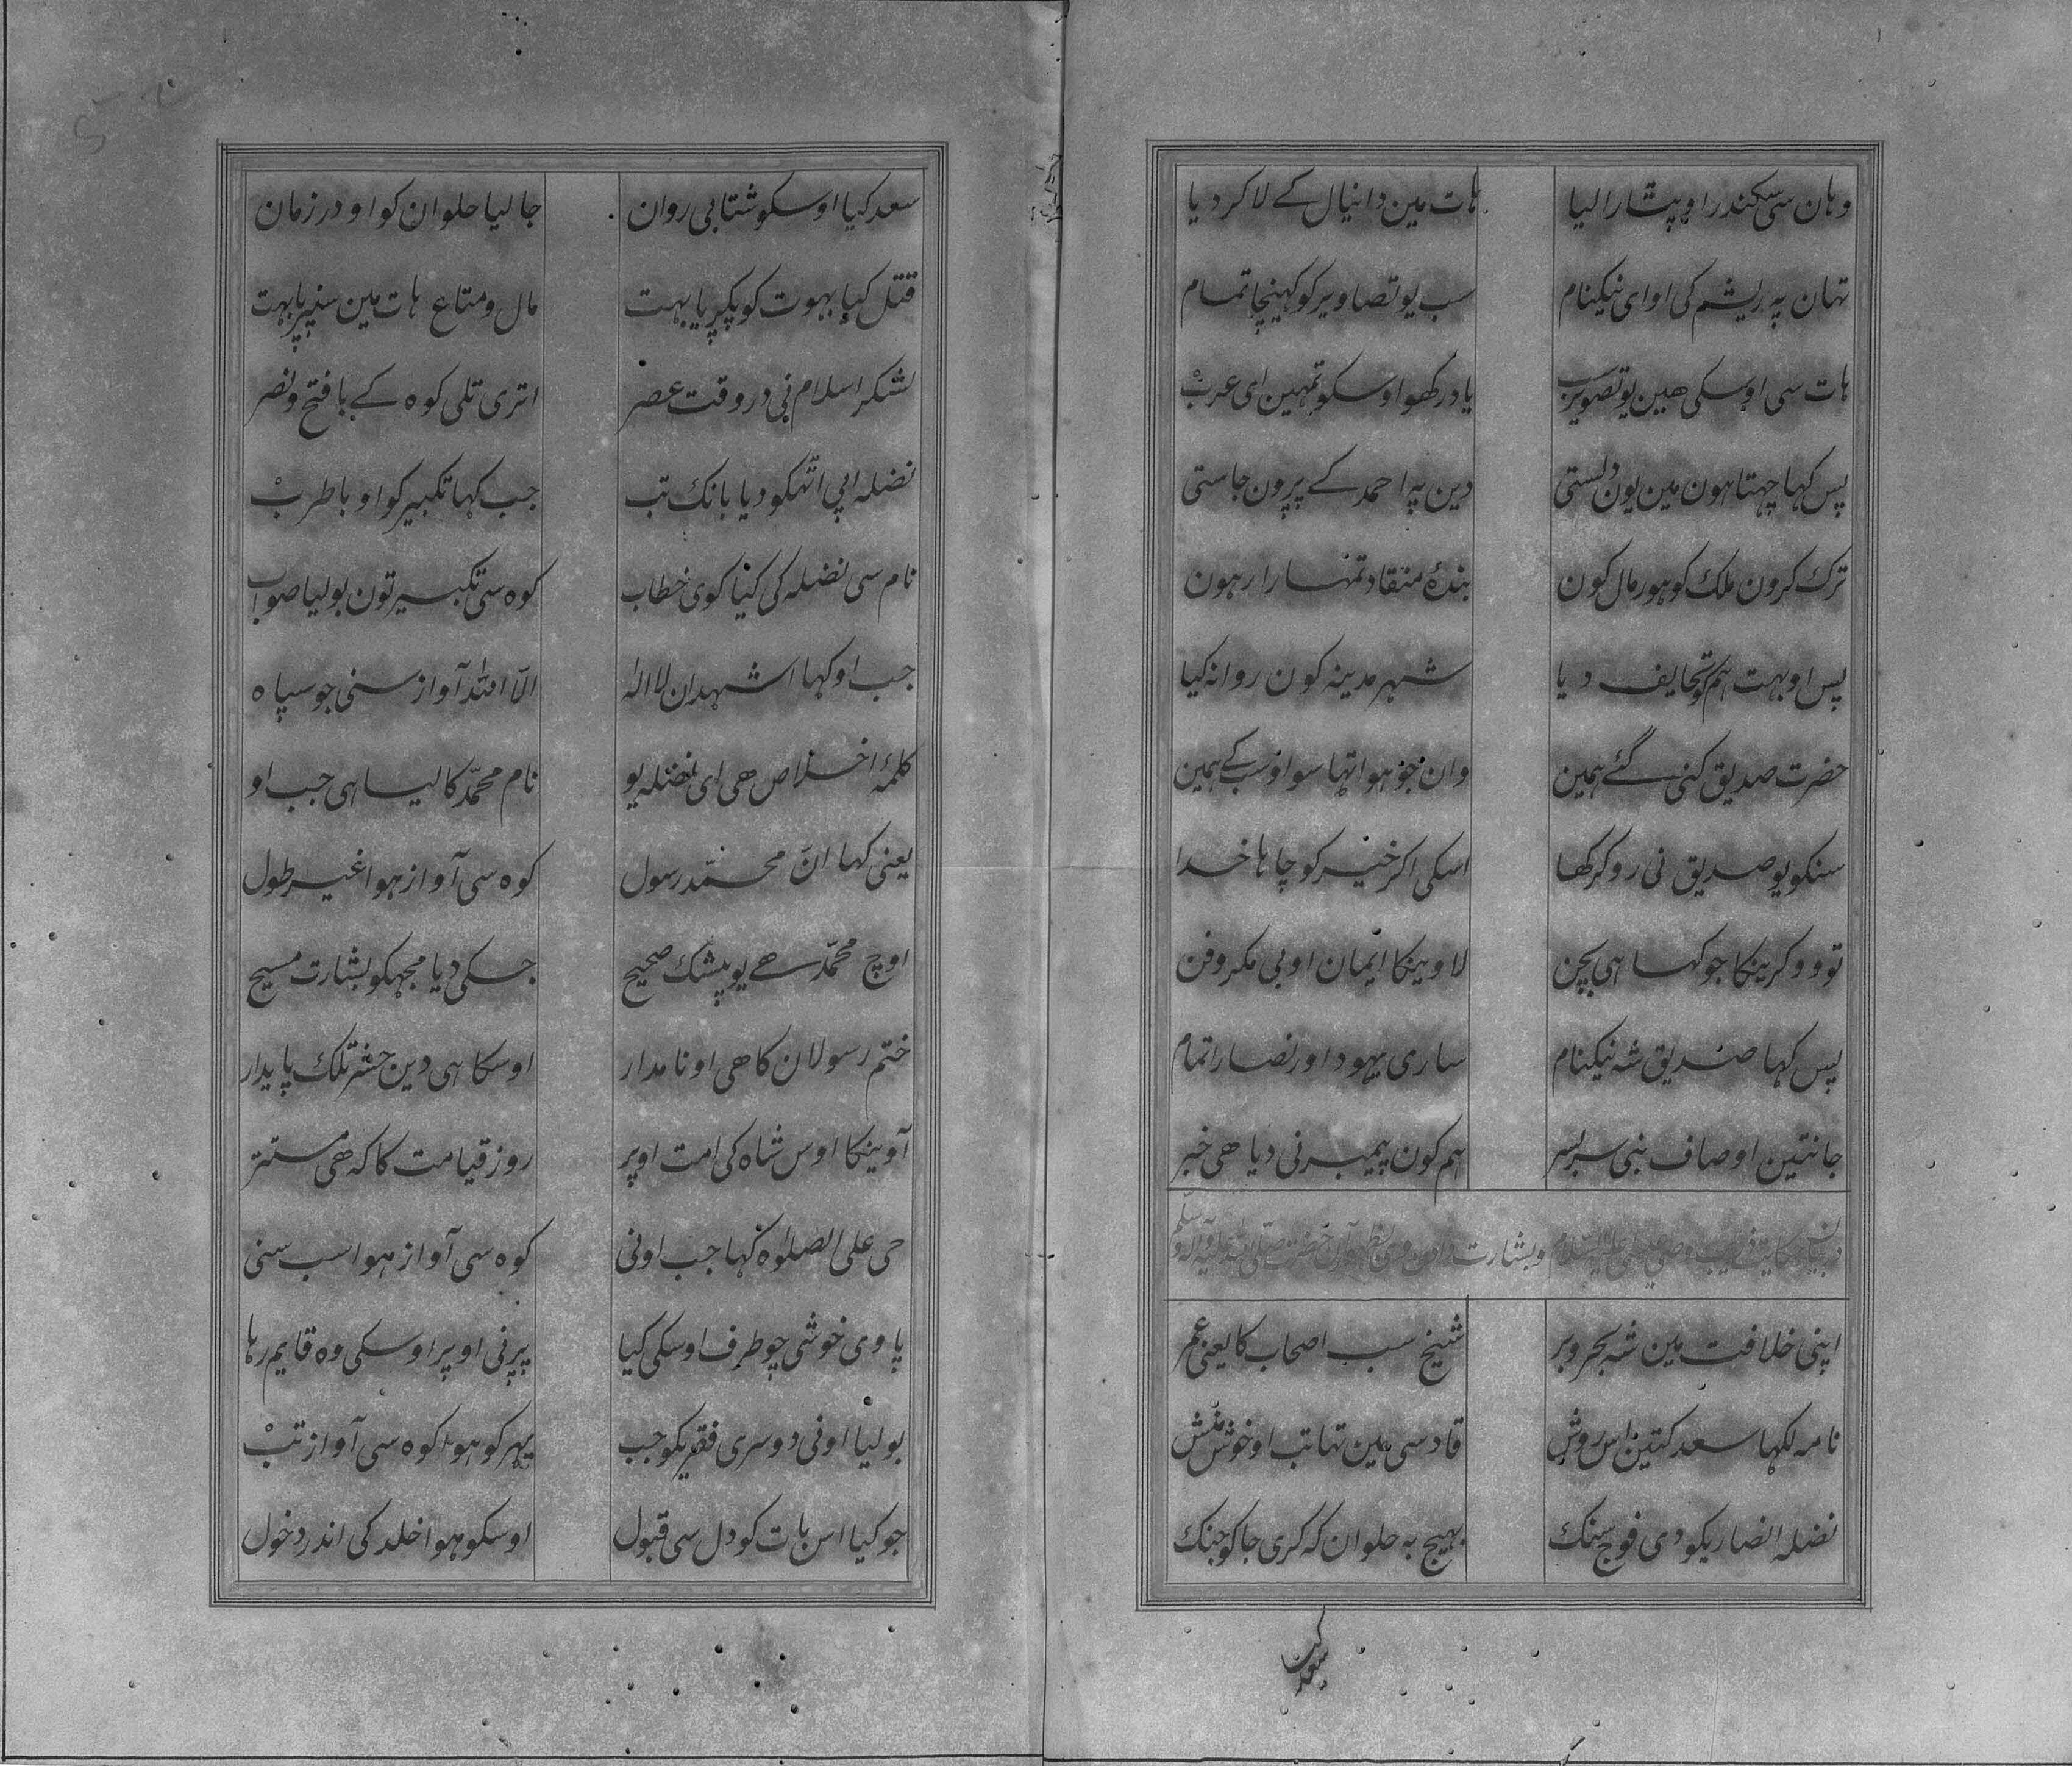 وہان سی سکندر او پشارا لیا ہات مین دانیال کے لا کر دیا
تہان پہ ریشم کی او ای نیکنام سب یو تصاویر کو کہینچا تمام
ہات سی اوسکی هین یو تصویر سب یاد رکھو اوسکو تمہین ای عرب
پس کہا چہتا ہون مین یون دلستی دین پہ احمد کے پرون جاستی
ترک کرون ملک کو ہور مال کون بندۂ منقاد تمہارا رہون
پس او بہت ہم کو تحایف دیا شہر مدینہ کون روانہ کیا
حضرت صدیق کنی گئے ہمین وان جو ہوا تہا سو او سب کے ہمین
سنکو یو صدیق نی رو کر کھا اسکی اکر خیر کو چاہا خدا
تو وو کرینکا جو کہا ہی بچن لاوینکا ایمان او بی مکر و فن
پس کہا صدیق شہ نیکنام ساری یہود اور نصارا تمام
جانتین اوصاف نبی سر بسر ہم کون پیمبر نی دیا ھی خبر
اپنی خلافت مین شہ بحر و بر شیخ سب اصحاب کا یعنی عمر
نامہ لکہا سعد کتین اس روش قادسی مین تہا تب او خوش منش
نضلہ انصاریکو دی فوج سنک بہیج بہ حلوان کہ کری جاکو جنک
سعد کیا
سعد کیا اوسکو شتابی روان جا لیا حلوان کو او در زمان
قتل کیا بہوت کو پکڑیا بہت مال و متاع ہات مین سنپڑیا بہت
لشکر اسلام نی در وقت عصر اتری تلی کوہ کے با فتح و نصر
نضلہ اپی اٹہکو دیا بانک تب جب کہا تکبیر کو او با طرب
نام سی نضلہ کی کیا کوی خطاب کوہ ستی تکبیر تون بولیا صواب
جب او کہا اشہد ان لا اله الّا الله آواز سنی جو سپاہ
کلمۂ اخلاص ھی ای نضلہ یو نام محمّد کا لیا ہی جب او
یعنی کہا انّ محمّد رسول کوہ سی آواز ہوا غیر طول
اوچ محمّد ھے یو بیشک صحیح جسکی دیا مجہکو بشارت مسیح
ختم رسولان کا ھی او نامدار اوسکا ہی دین حشر تلک پایدار
آوینکا اوس شاہ کی امت اوپر روز قیامت کا کہ ھی مستتر
حی علی الصلوه کہا جب اونی کوہ سی آواز ہوا سب سنی
پاوی خوشی جو طرف اوسکی کیا پیرنی اوپر اوسکی وہ قایم رہا
بولیا اونی دوسری فقریکو جب پہر کو ہوا کوہ سی آواز تب
جو کیا اس بات کو دل سی قبول اوسکو ہوا خلد کی اندر دخول